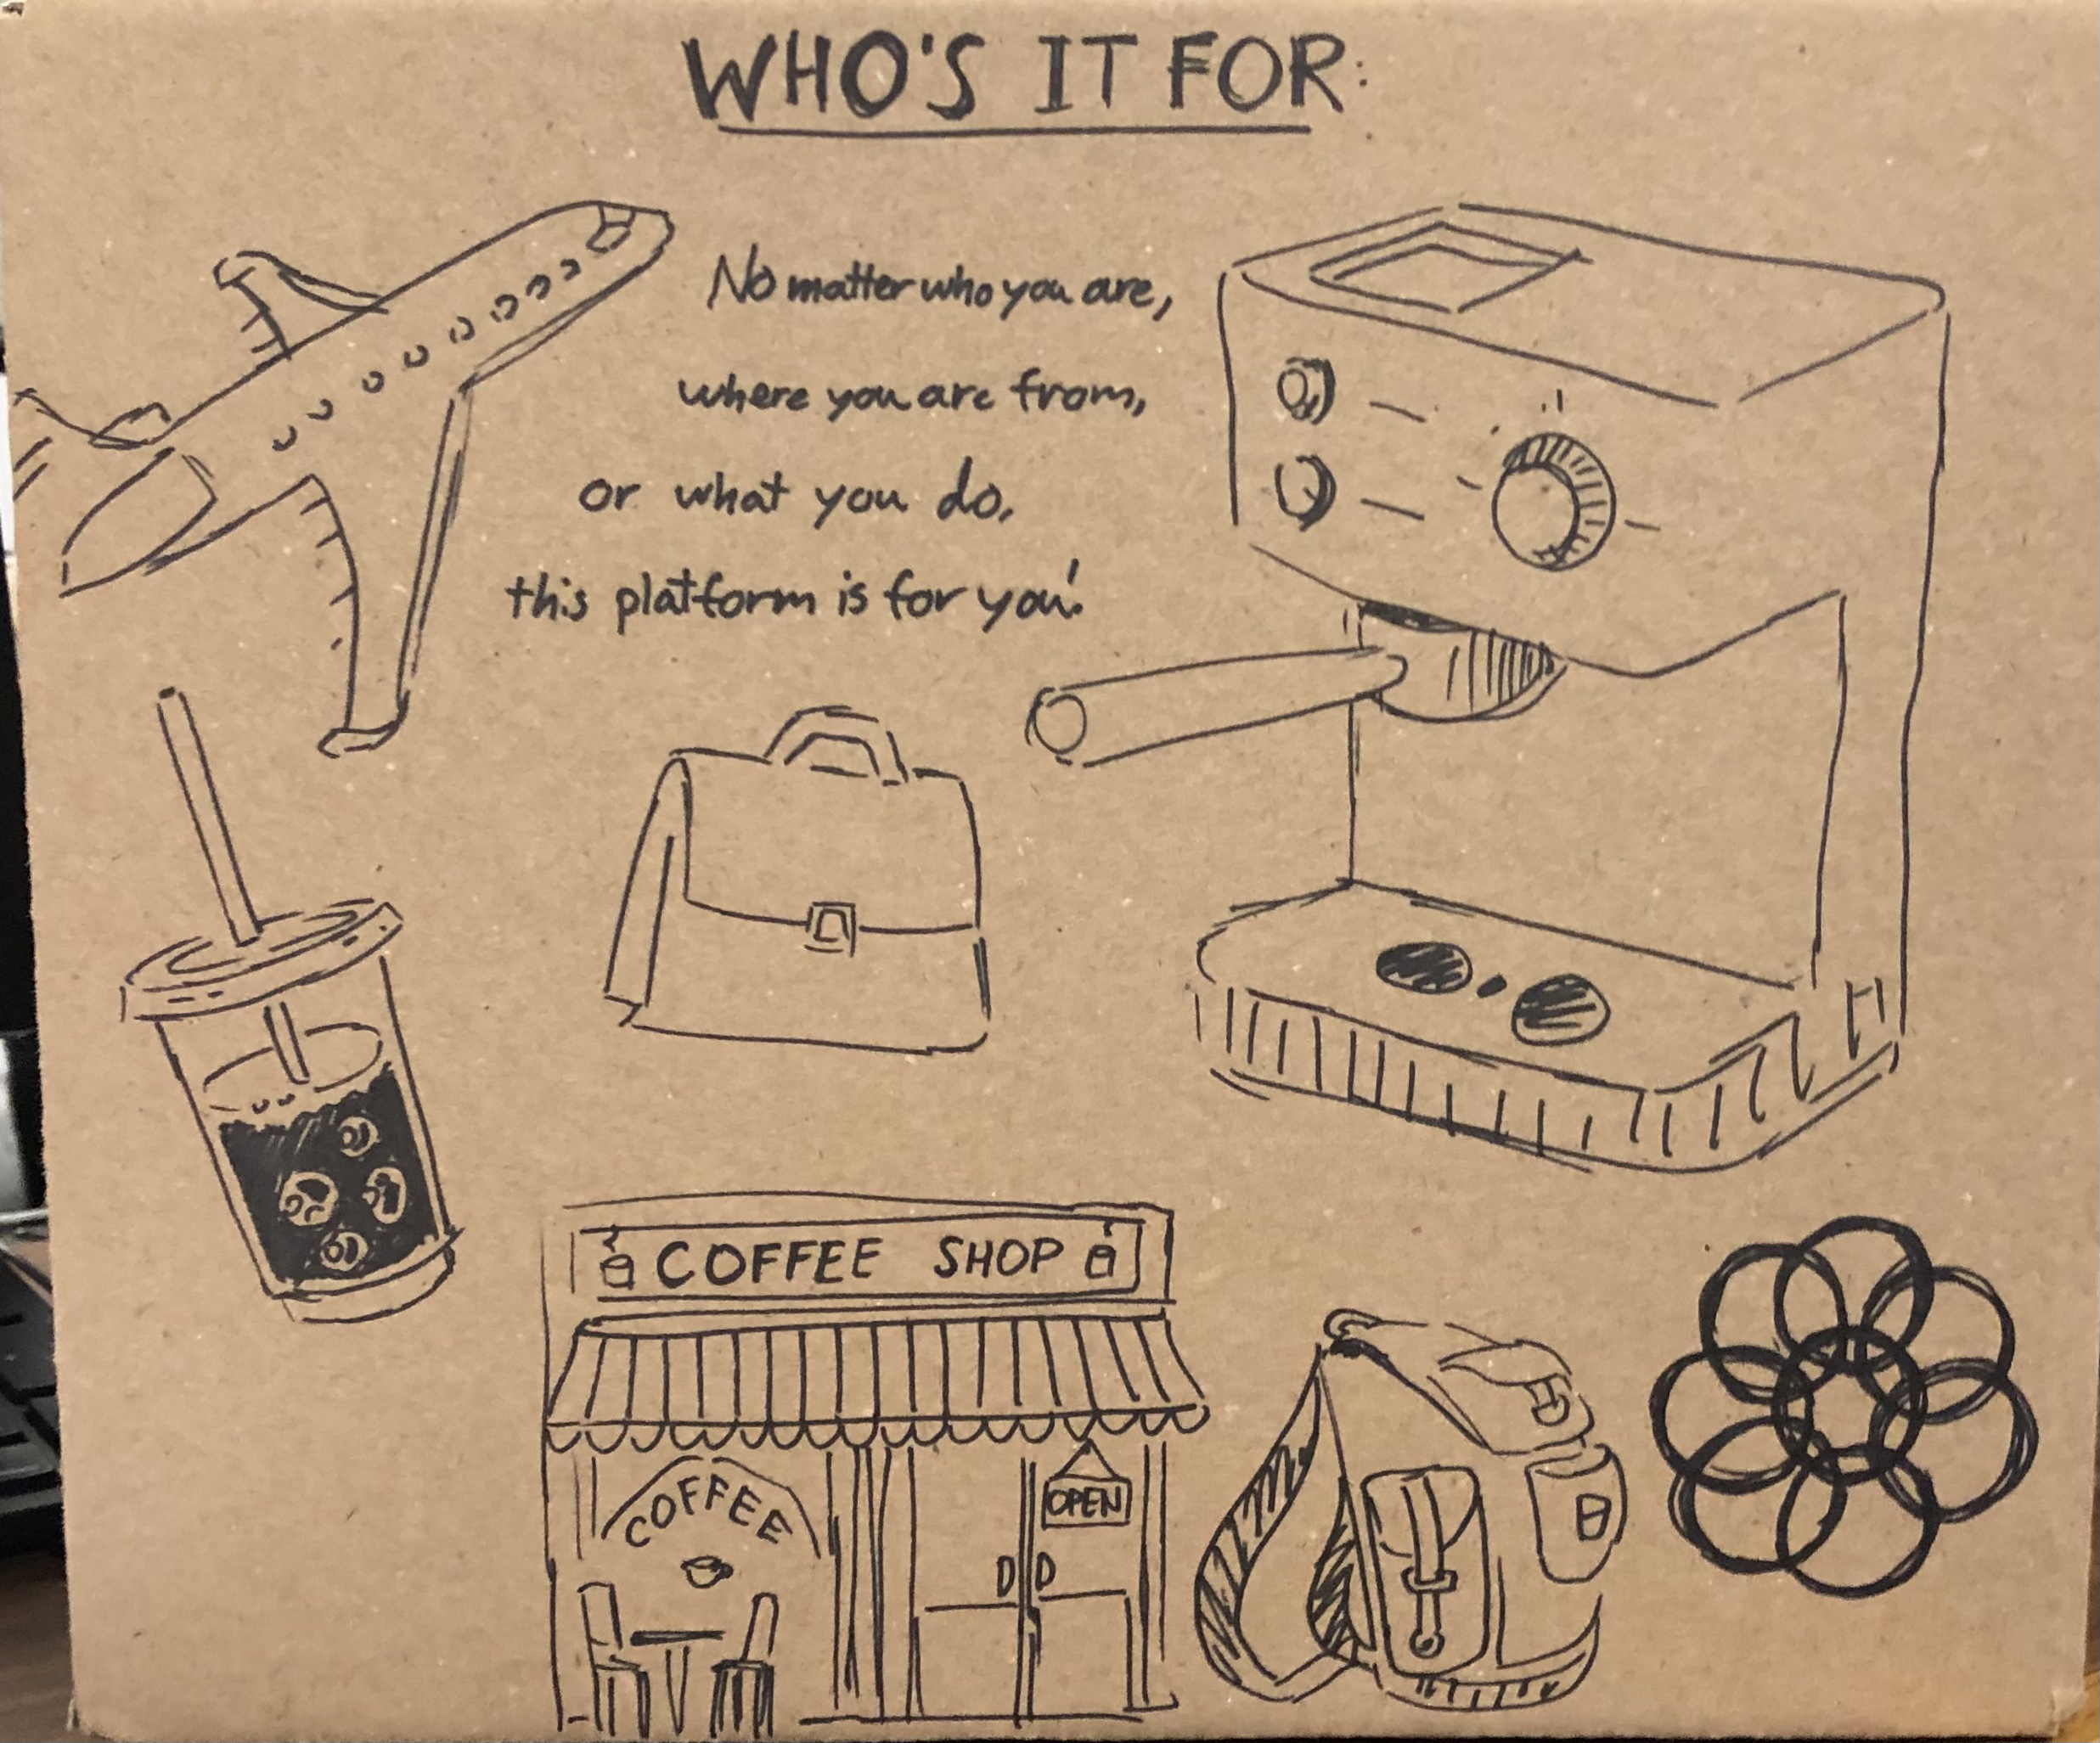 WHO'S IT FOR:
No matter who you are,
where you are from,
or what you do,
this platform is for you!
COFFEE SHOP
COFFEE
OPEN